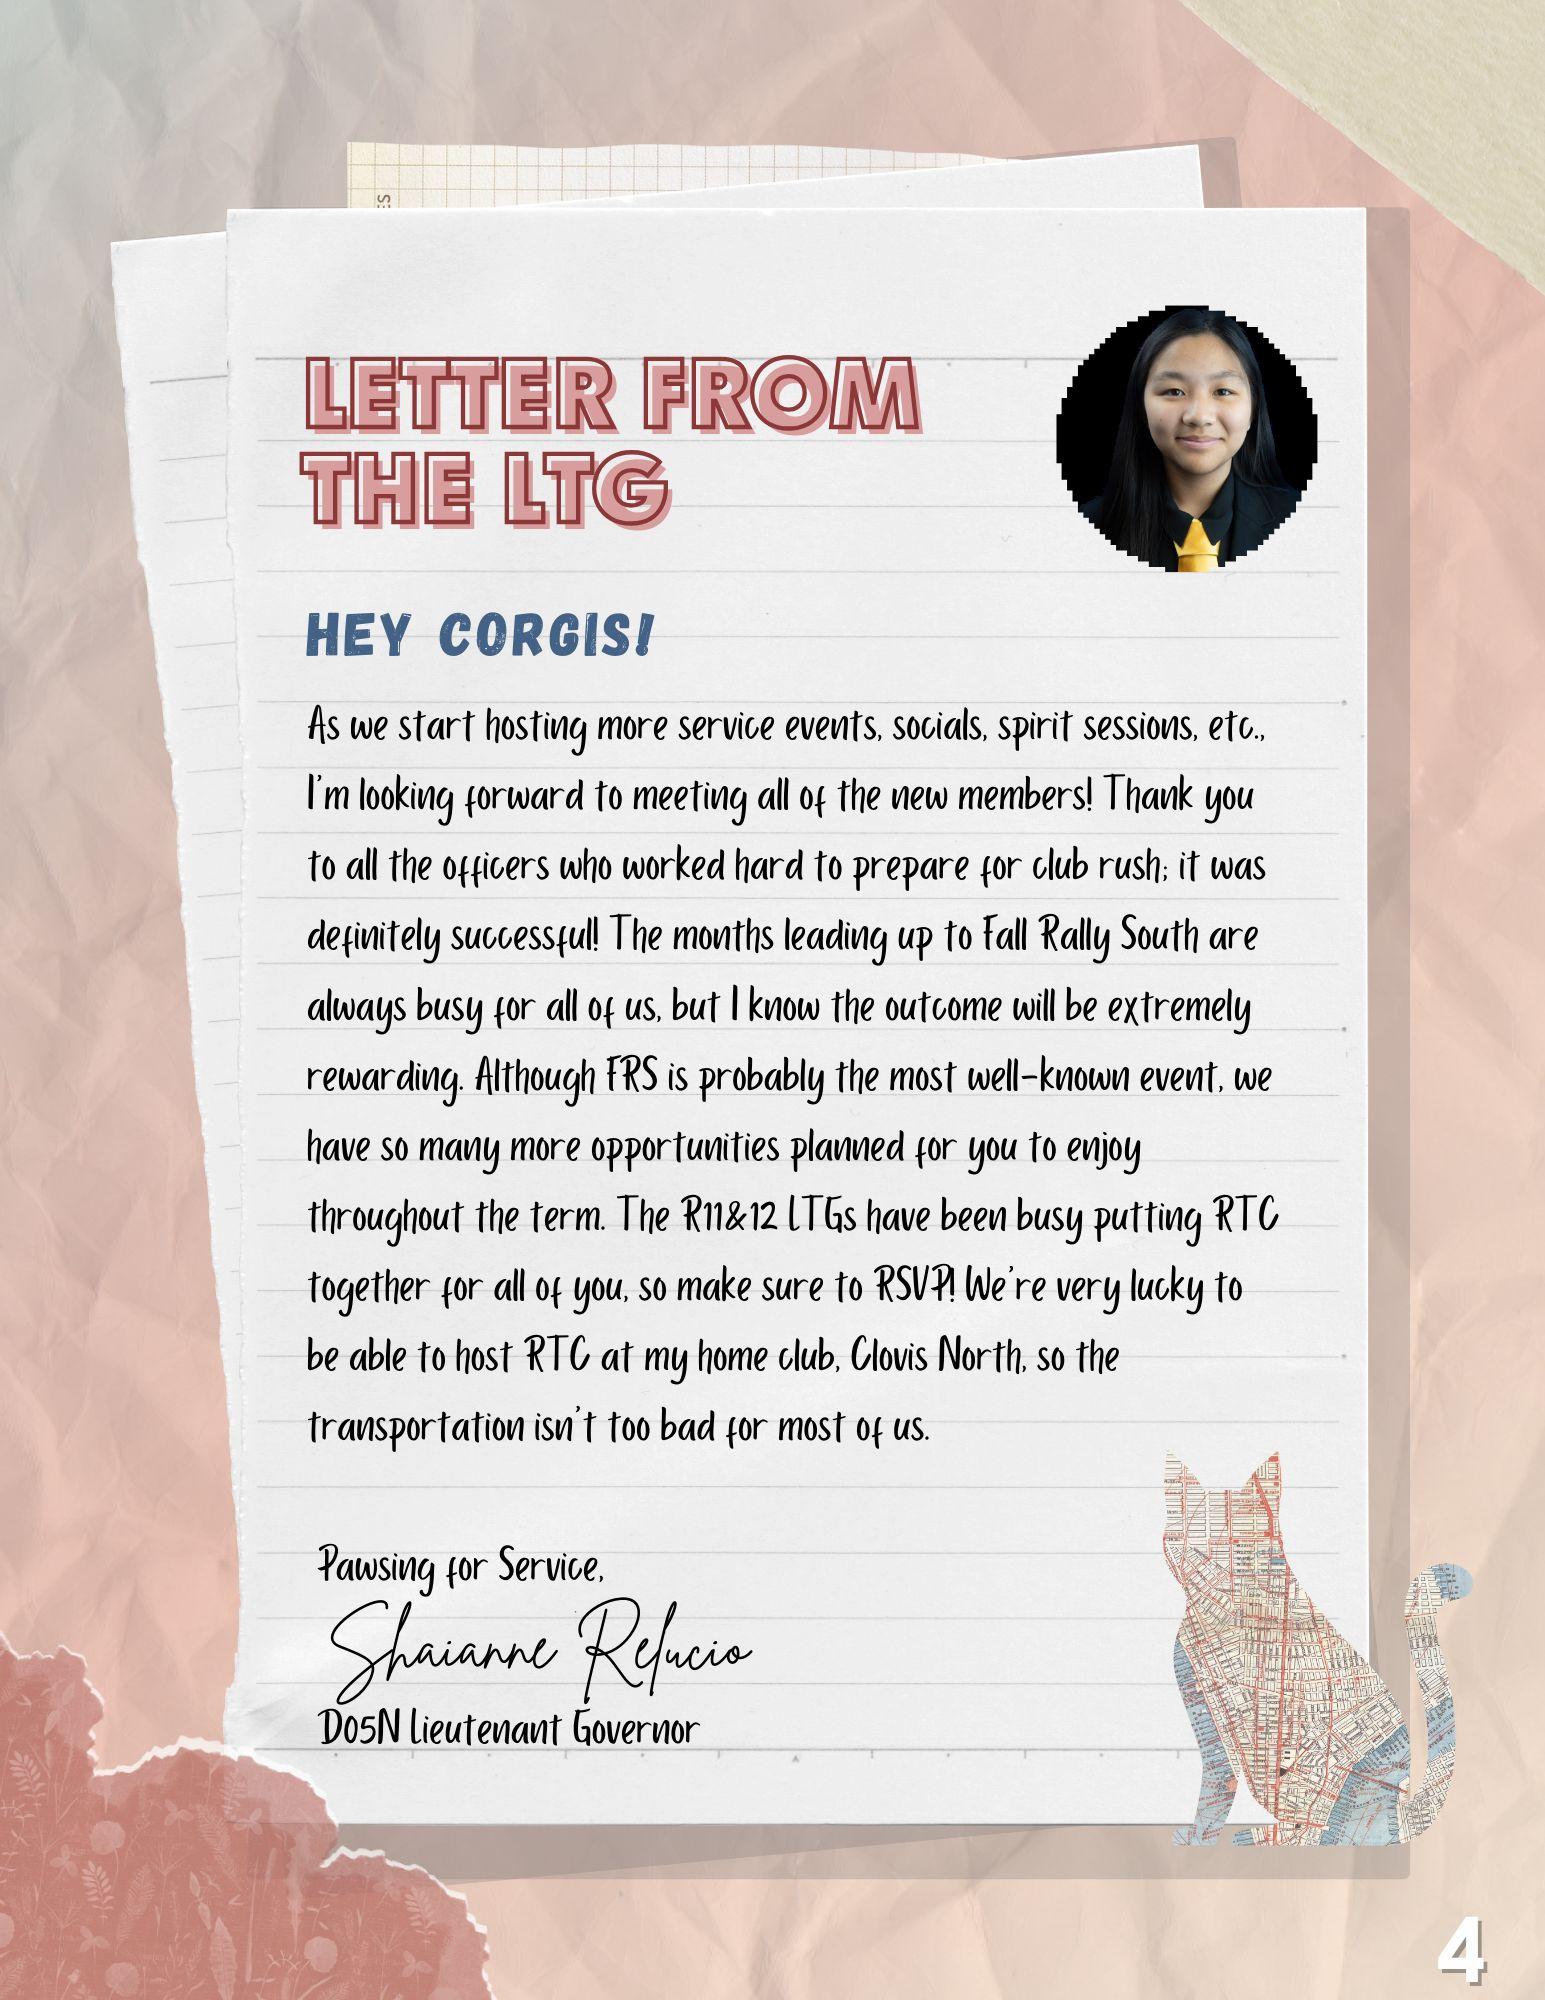 ES
LETTER FROM
THE LTG
HEY CORGIS!
As we start hosting more service events, socials, spirit sessions, etc.,
I'm looking forward to meeting all of the new members! Thank you
to all the officers who worked hard to prepare for club rush; it was
definitely successful! The months leading up to Fall Rally South are
always busy for all of us, but I know the outcome will be extremely
rewarding. Although FRS is probably the most well-known event, we
have so many more opportunities planned for you to enjoy
throughout the term. The R11&12 LTGs have been busy putting RTC
together for all of you, so make sure to RSVP! We're very lucky to
be able to host RTC at my home club, Clovis North, so the
transportation isn't too bad for most of us.
Pawsing for Service,
Shaianne Relucio
D05N Lieutenant Governor
4